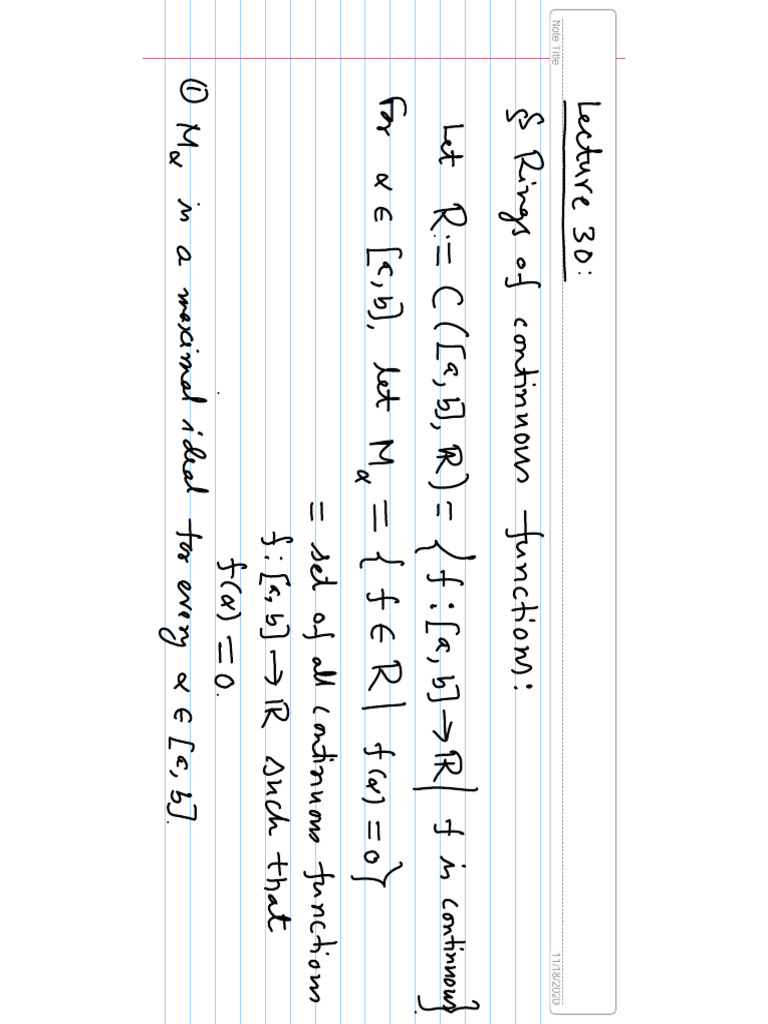 Note Title
11/18/2020
Lecture 30:
§§ Rings of continuous functions:
Let R := C([a,b], ℝ) = { f : [a,b] → ℝ | f is continuous}
For α ∈ [a,b], let M_α = { f ∈ R | f(α) = 0}
= set of all continuous functions
f : [a,b] → ℝ such that
f(α) = 0.
① M_α is a maximal ideal for every α ∈ [a,b].